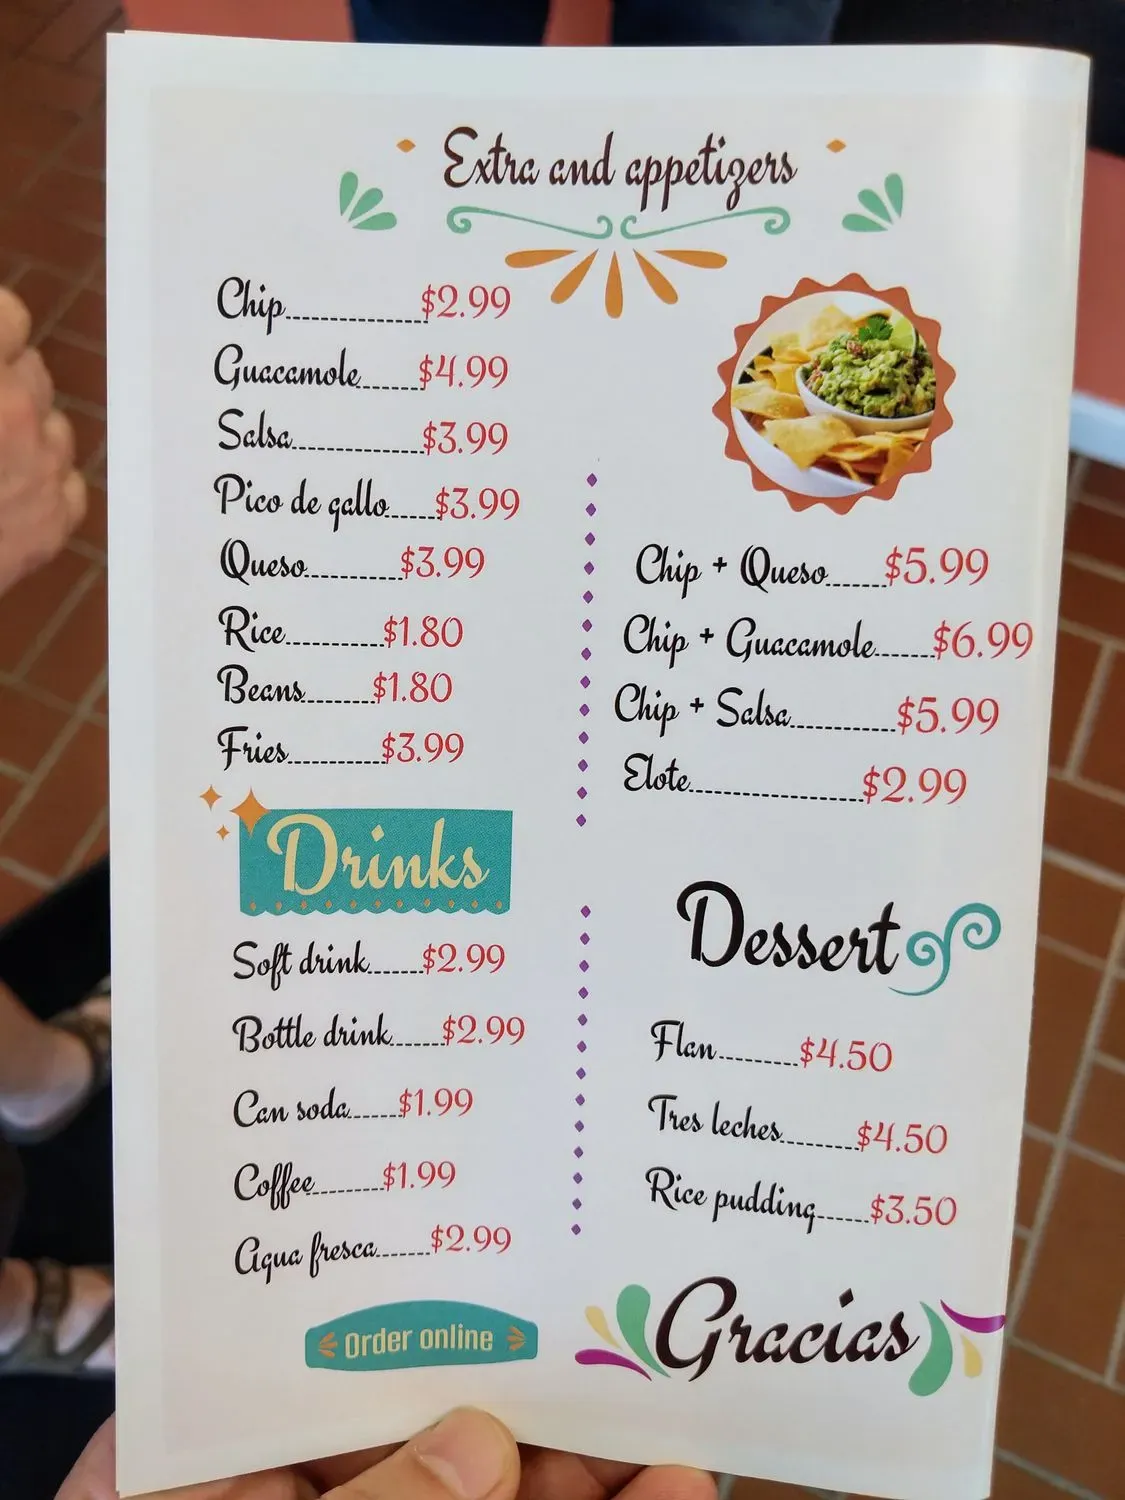 Extra and appetizers
Chip $2.99
Guacamole $4.99
Salsa $3.99
Pico de gallo $3.99
Queso $3.99
Rice $1.80
Beans $1.80
Fries $3.99
Chip + Queso $5.99
Chip + Guacamole $6.99
Chip + Salsa $5.99
Elote $2.99
Drinks
Soft drink $2.99
Bottle drink $2.99
Can soda $1.99
Coffee $1.99
Agua fresca $2.99
Order online
Dessert
Flan $4.50
Tres leches $4.50
Rice pudding $3.50
Gracias